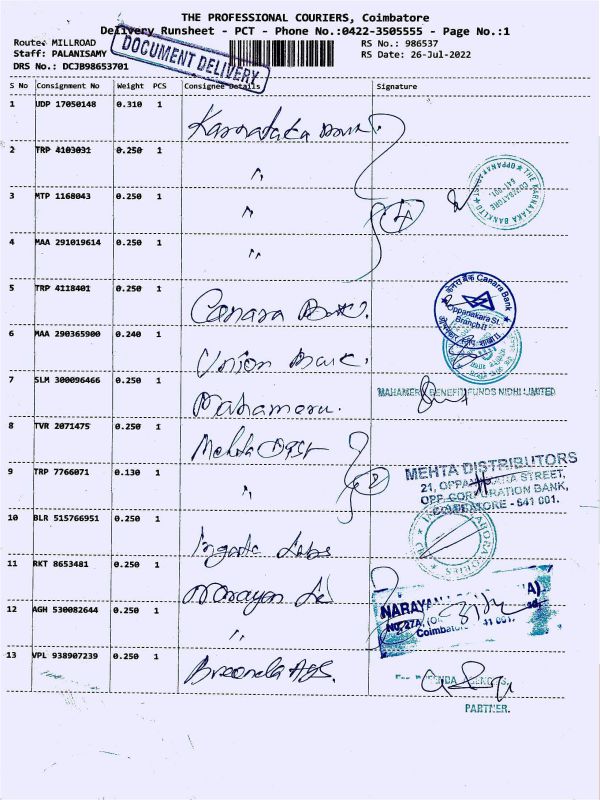 THE PROFESSIONAL COURIERS, Coimbatore
Delivery Runsheet - PCT - Phone No.:0422-3505555 - Page No.:1
Route: MILLROAD
RS No.: 986537
Staff: PALANISAMY
RS Date: 26-Jul-2022
DRS No.: DCJB98653701
DOCUMENT DELIVERY
S No Consignment No Weight PCS Consignee Details Signature
1 UDP 17050148 0.310 1 Karnataka Bank
2 TRP 4103031 0.250 1 "
3 MTP 1168043 0.250 1 "
4 MAA 291019614 0.250 1 "
4
THE KARNATAKA BANK LTD
OPPANAKARA ST
COIMBATORE
641 001.
5 TRP 4118401 0.250 1 Canara Bank.
केनरा बैंक Canara Bank
Oppanakara St.
Branch II
6 MAA 290365900 0.240 1 Union Bank.
7 SLM 300096466 0.250 1 Mahameru.
MAHAMERU BENEFIT FUNDS NIDHI LIMITED
8 TVR 2071475 0.250 1 Mehta Dist
9 TRP 7766071 0.130 1 "
2
MEHTA DISTRIBUTORS
21, OPPANAKARA STREET,
OPP. CORPORATION BANK,
COIMBATORE - 641 001.
10 BLR 515766951 0.250 1 Labs
11 RKT 8653481 0.250 1 Narayan
12 AGH 530082644 0.250 1 "
NARAYAN
No.27A,
Coimbatore 641 001.
13 VPL 938907239 0.250 1
PARTNER.